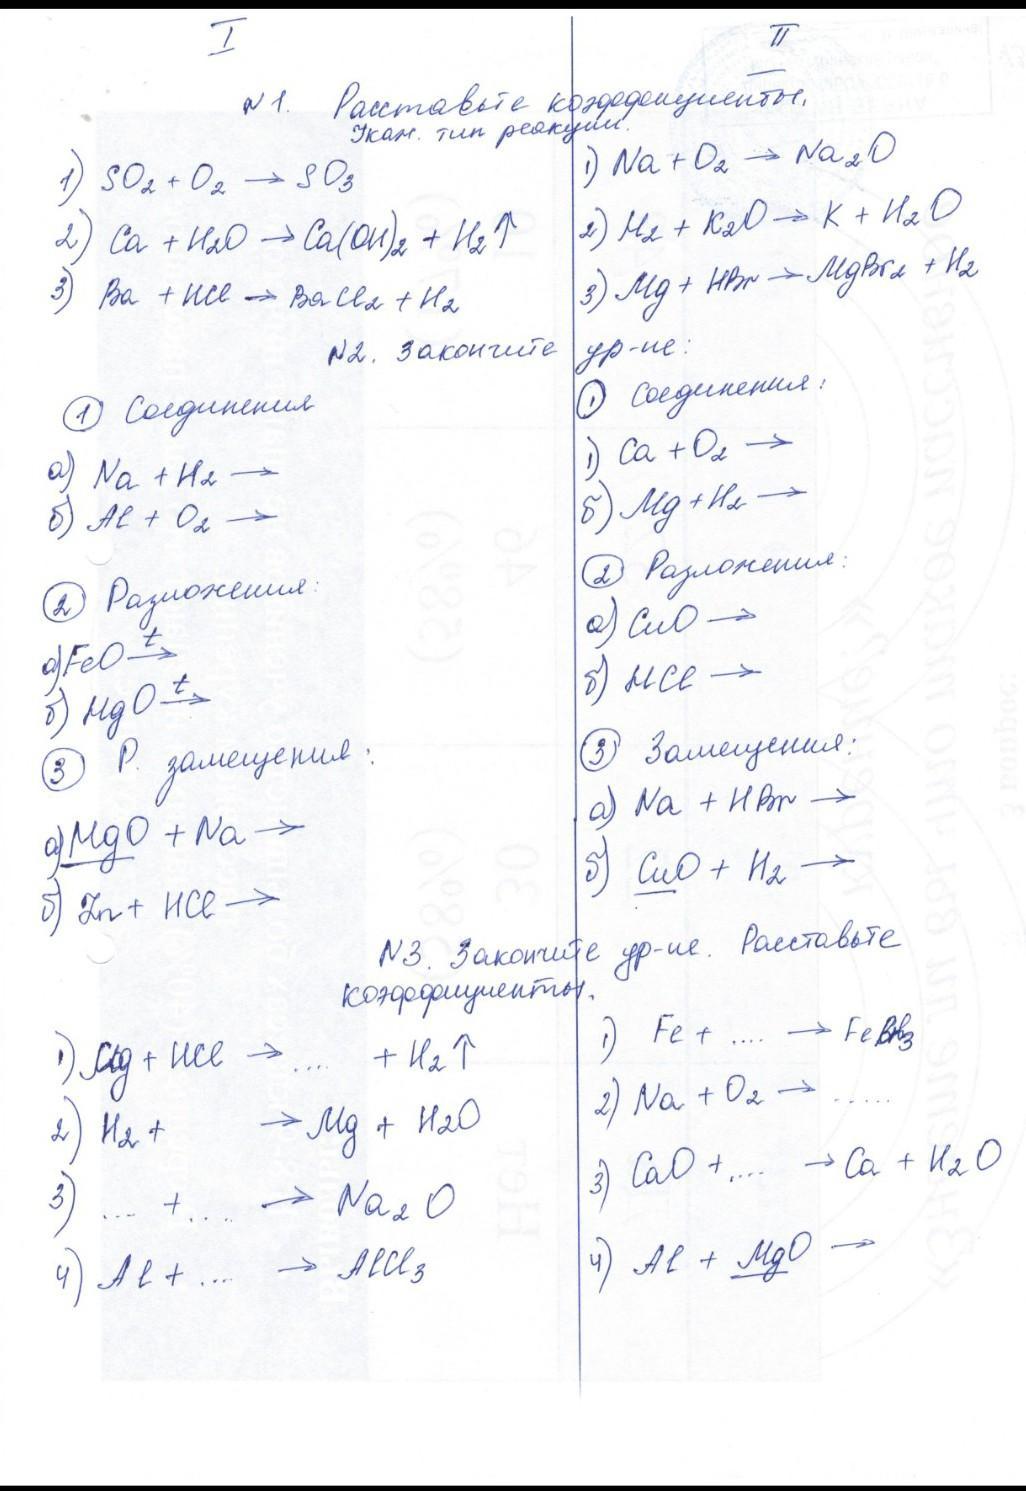 I
II
N1. Расставьте коэффициенты.
Укаж. тип реакции.
1) SO2 + O2 → SO3
2) Ca + H2O → Ca(OH)2 + H2↑
3) Ba + HCl → BaCl2 + H2
1) Na + O2 → Na2O
2) H2 + K2O → K + H2O
3) Mg + HBr → MgBr2 + H2
N2. Закончите ур-ие:
1 Соединения
а) Na + H2 →
б) Al + O2 →
2 Разложения:
а) FeO t→
б) HgO t→
3 Р. замещения:
а) MgO + Na →
б) Zn + HCl →
1 Соединения:
1) Ca + O2 →
б) Mg + H2 →
2 Разложения:
а) CuO →
б) HCl →
3 Замещения:
а) Na + HBr →
б) CuO + H2 →
N3. Закончите ур-ие. Расставьте
коэффициенты.
1) Mg + HCl → .... + H2↑
2) H2 + → Mg + H2O
3) .... + .... → Na2O
4) Al + .... → AlCl3
1) Fe + .... → FeBr3
2) Na + O2 → .....
3) CaO + .... → Ca + H2O
4) Al + MgO →